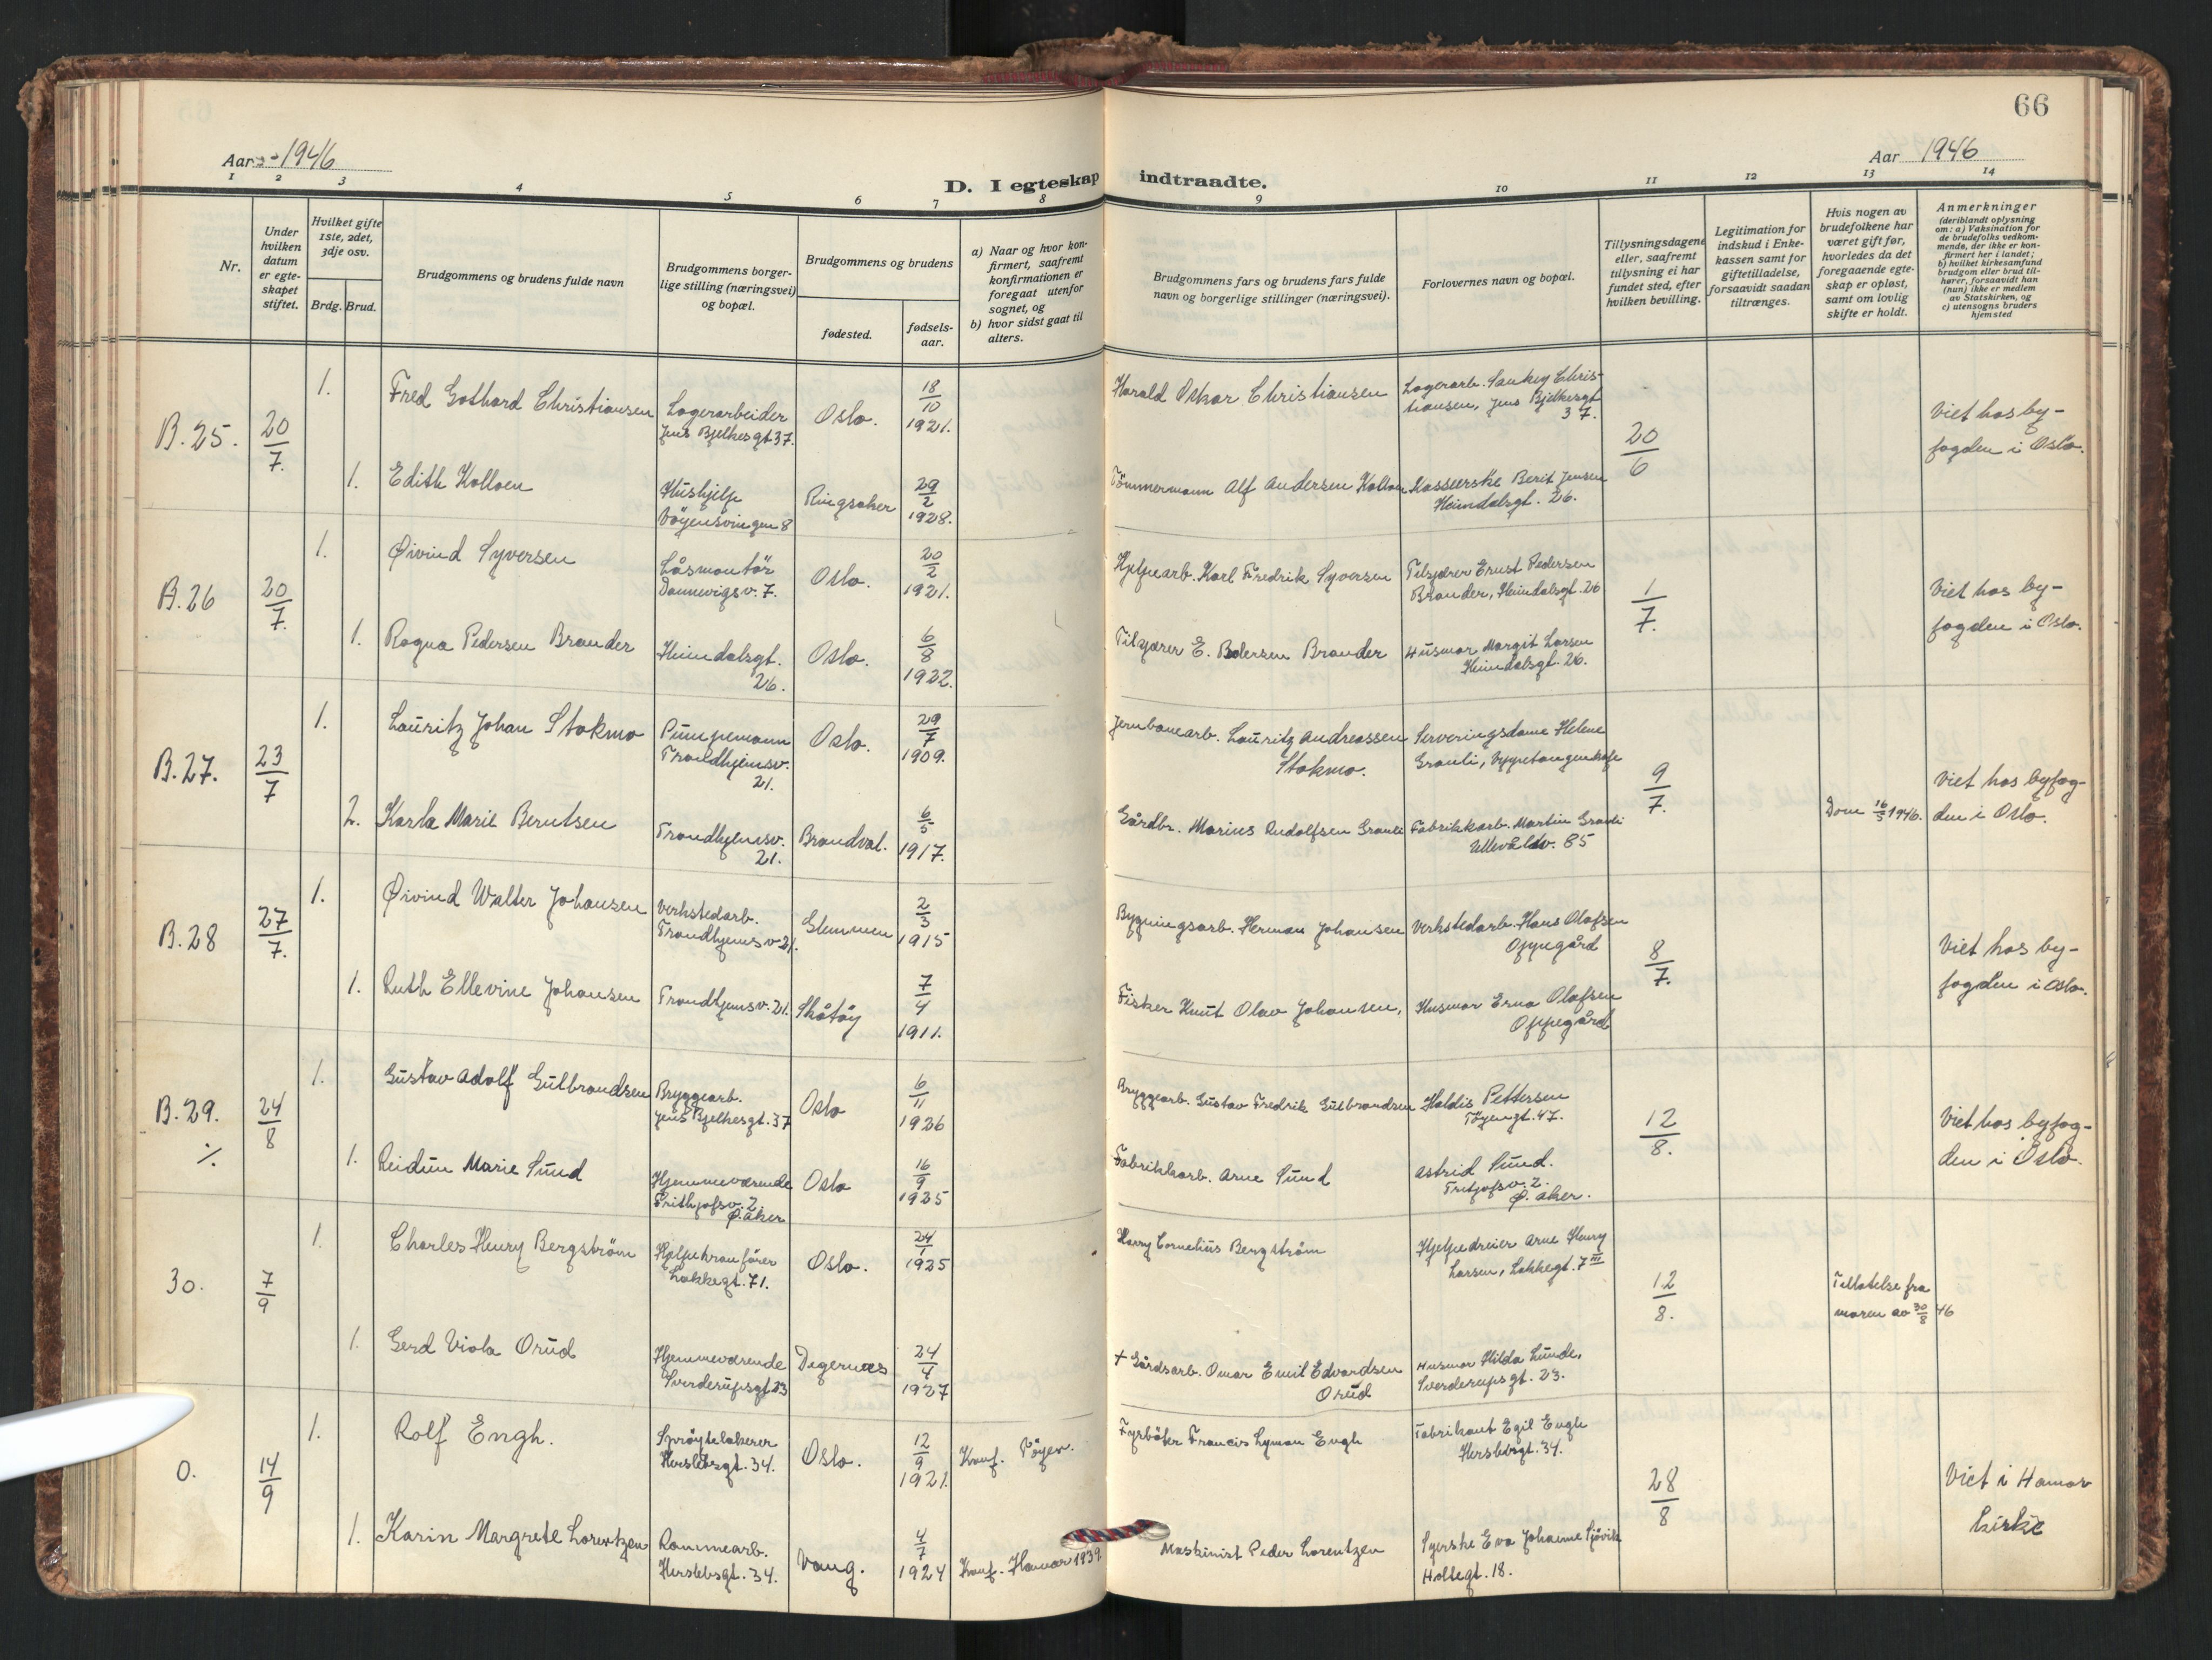 66
Aar 1946
Aar 1946
D. I egteskap indtraadte.
1 2 3 4 5 6 7 8 9 10 11 12 13 14
Nr.
Under
hvilken
datum
er egte-
skapet
stiftet.
Hvilket gifte
1ste, 2det,
3dje osv.
Brdg. Brud.
Brudgommens og brudens fulde navn
Brudgommens borger-
lige stilling (næringsvei)
og bopæl.
Brudgommens og brudens
fødested.
fødsels-
aar.
a) Naar og hvor kon-
firmert, saafremt
konfirmationen er
foregaat utenfor
sognet, og
b) hvor sidst gaat til
alters.
Brudgommens fars og brudens fars fulde
navn og borgerlige stillinger (næringsvei).
Forlovernes navn og bopæl.
Tillysningsdagene
eller, saafremt
tillysning ei har
fundet sted, efter
hvilken bevilling.
Legitimation for
indskud i Enke-
kassen samt for
giftetilladelse,
forsaavidt saadan
tiltrænges.
Hvis nogen av
brudefolkene har
været gift før,
hvorledes da det
foregaaende egte-
skap er opløst,
samt om lovlig
skifte er holdt.
Anmerkninger
(deriblandt oplysning
om: a) Vaksination for
de brudefolks vedkom-
mende, der ikke er kon-
firmert her i landet;
b) hvilket kirkesamfund
brudgom eller brud til-
hører, forsaavidt han
(hun) ikke er medlem
av Statskirken, og
c) utensogns bruders
hjemsted
B.25. 20/7.
1. Fred Gothard Christiansen
Lagerarbeider
Jens Bjelkesgt 37.
Oslo.
18/10 1921.
Harald Oskar Christiansen
Lagerarb. Sankey Chris-
tiansen, Jens Bjelkesgt
37.
20/6
Viet hos by-
fogden i Oslo.
1. Edith Kolloen
Hushjelp
Vøyensvingen 8
Ringsaker
29/2 1928.
Tömmermann Alf Andersen Kolloen
Kasserske Berit Jensen
Heimdalsgt. 26.
B.26 20/7.
1. Øivind Syversen
Låsmontör
Dannevigsv. 7.
Oslo.
20/2 1921.
Hjelpearb. Karl Fredrik Syversen
Tilsjårer Ernst Pedersen
Brander, Heimdalsgt. 26
1/7.
Viet hos by-
fogden i Oslo.
1. Ragna Pedersen Brander
Heimdalsgt.
26.
Oslo.
6/8 1922.
E. Pedersen Brander
Husmor Margit Larsen
Heimdalsgt. 26.
B.27. 23/7
1. Lauritz Johan Stokmo
Pumpemann
Trondhjemsv.
21.
Oslo.
29/7 1909.
Jernbanearb. Lauritz Andreassen
Stokmo.
Serveringsdame Helene
Granli, Vippetangenkafe
9/7.
Viet hos byfog-
den i Oslo.
2. Karla Marie Berntsen
Trondhjemsv.
21.
Brandval.
6/5 1917.
Gårdbr. Marius Rudolfsen Granli
Fabrikkarb. Martin Granli
Ullevålsv. 85
Dom 16/5 1946.
B.28 27/7.
1. Øivind Walter Johansen
Verkstedarb.
Trondhjemsv 21.
Glemmen
2/3 1915
Bygningsarb. Herman Johansen
Verkstedarb. Hans Olafsen
Oppegård
8/7.
Viet hos by-
fogden i Oslo.
1. Ruth Ellevine Johansen
Trondhjemsv. 21.
Skåtöy
7/4 1911.
Fisker Knut Olav Johansen,
Husmor Erna Olafsen
Oppegård
B.29. 24/8
⁒
1. Gustav Adolf Gulbrandsen
Bryggearb.
Jens Bjelkesgt. 37
Oslo
6/11 1926
Bryggearb. Gustav Fredrik Gulbrandsen
Haldis Pettersen
Töyengt. 47.
12/8.
Viet hos byfog-
den i Oslo.
1. Reidun Marie Sund
Hjemmeværende
Frithjofsv. 2.
Ø. Aker
Oslo
16/9 1925
Fabrikkarb. Arne Sund
Astrid Sund.
Fritjofsv. 2.
Ø. Aker.
30. 7/9
1. Charles Henry Bergström
Hjelpekranförer
Lakkegt. 71.
Oslo.
24/1 1925
Harry Cornelius Bergström
Hjelpedreier Arne Henry
Larsen, Lakkegt. 7 III
12/8.
Tillatelse fra
moren av 30/8 46
1. Gerd Viola Orud
Hjemmeværende
Sverderupsgt. 23
Degernes
24/4 1927
+ Gårdsarb. Omar Emil Edvardsen
Orud
Husmor Hilda Lunde,
Sverderupsgt. 23.
0. 14/9
1. Rolf Engh.
Spröytelakerer
Herslebsgt. 34.
Oslo.
12/9 1921.
Konf. Töyen.
Fyrböter Francis Lyman Engh
Fabrikant Egil Engh
Herslebsgt. 34.
28/8
Viet i Hamar
kirke
1. Karin Margrete Lorentzen
Rammearb.
Herslebsgt. 34.
Vang.
4/7 1924
Konf. Hamar 1939.
Maskinist Peder Lorentzen
Syerske Eva Johanne Sjövik
Holtegt. 18.